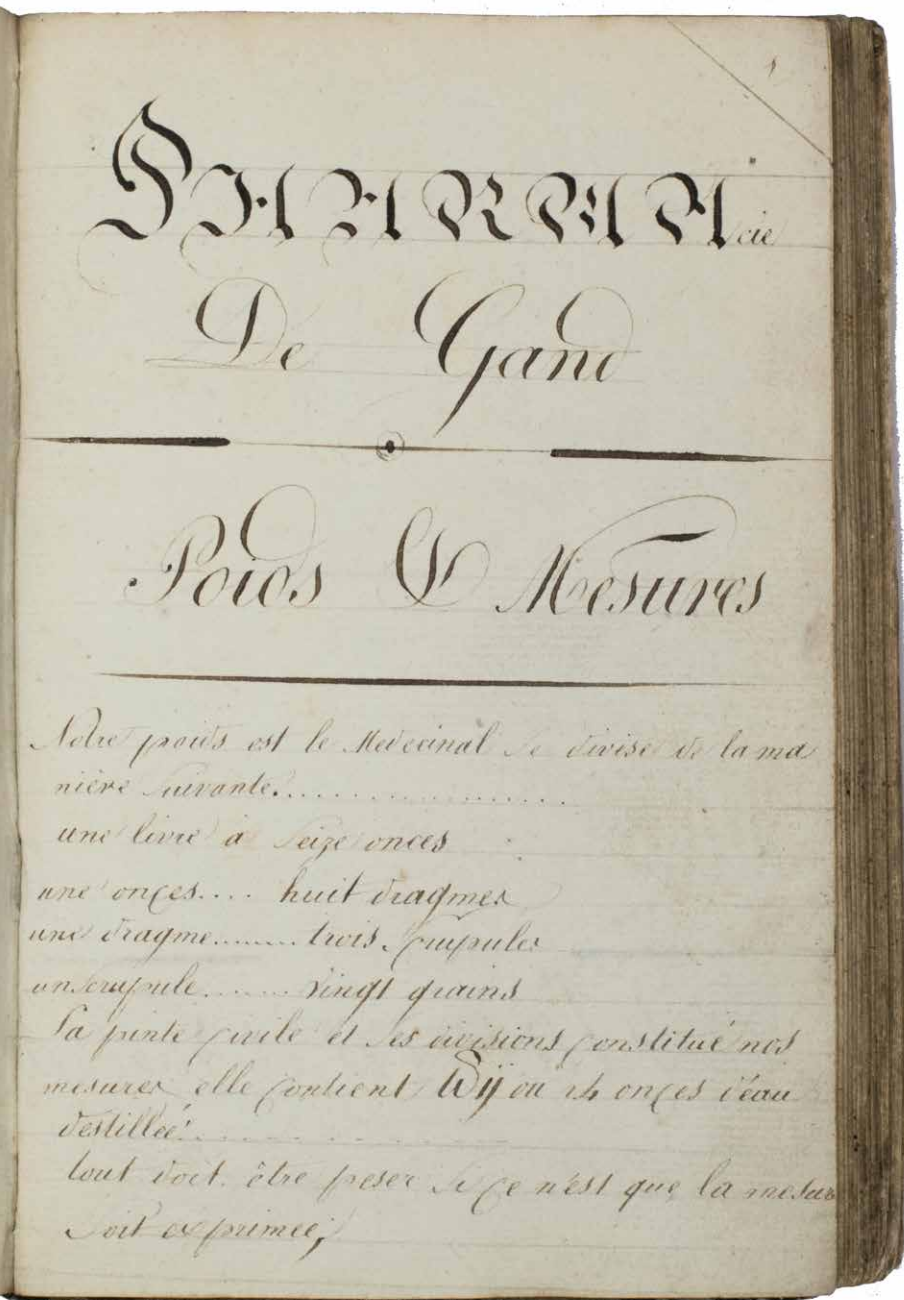 1
PHARMAcie
De Gand
Poids & Mesures
Notre poids est le Medecinal Se divise de la ma
nière Suivante..................
une livre à Seize onces
une onçes.... huit dragmes
une dragme........ trois Scrupules
un Scrupule....... vingt grains
La pinte çivile et Ses divisions çonstitué nos
mesures elle çontient ℔ij ou 24 onçes d'éau
destillée.
tout doit être peser Si çe n'est que la mesure
Soit exprimée;